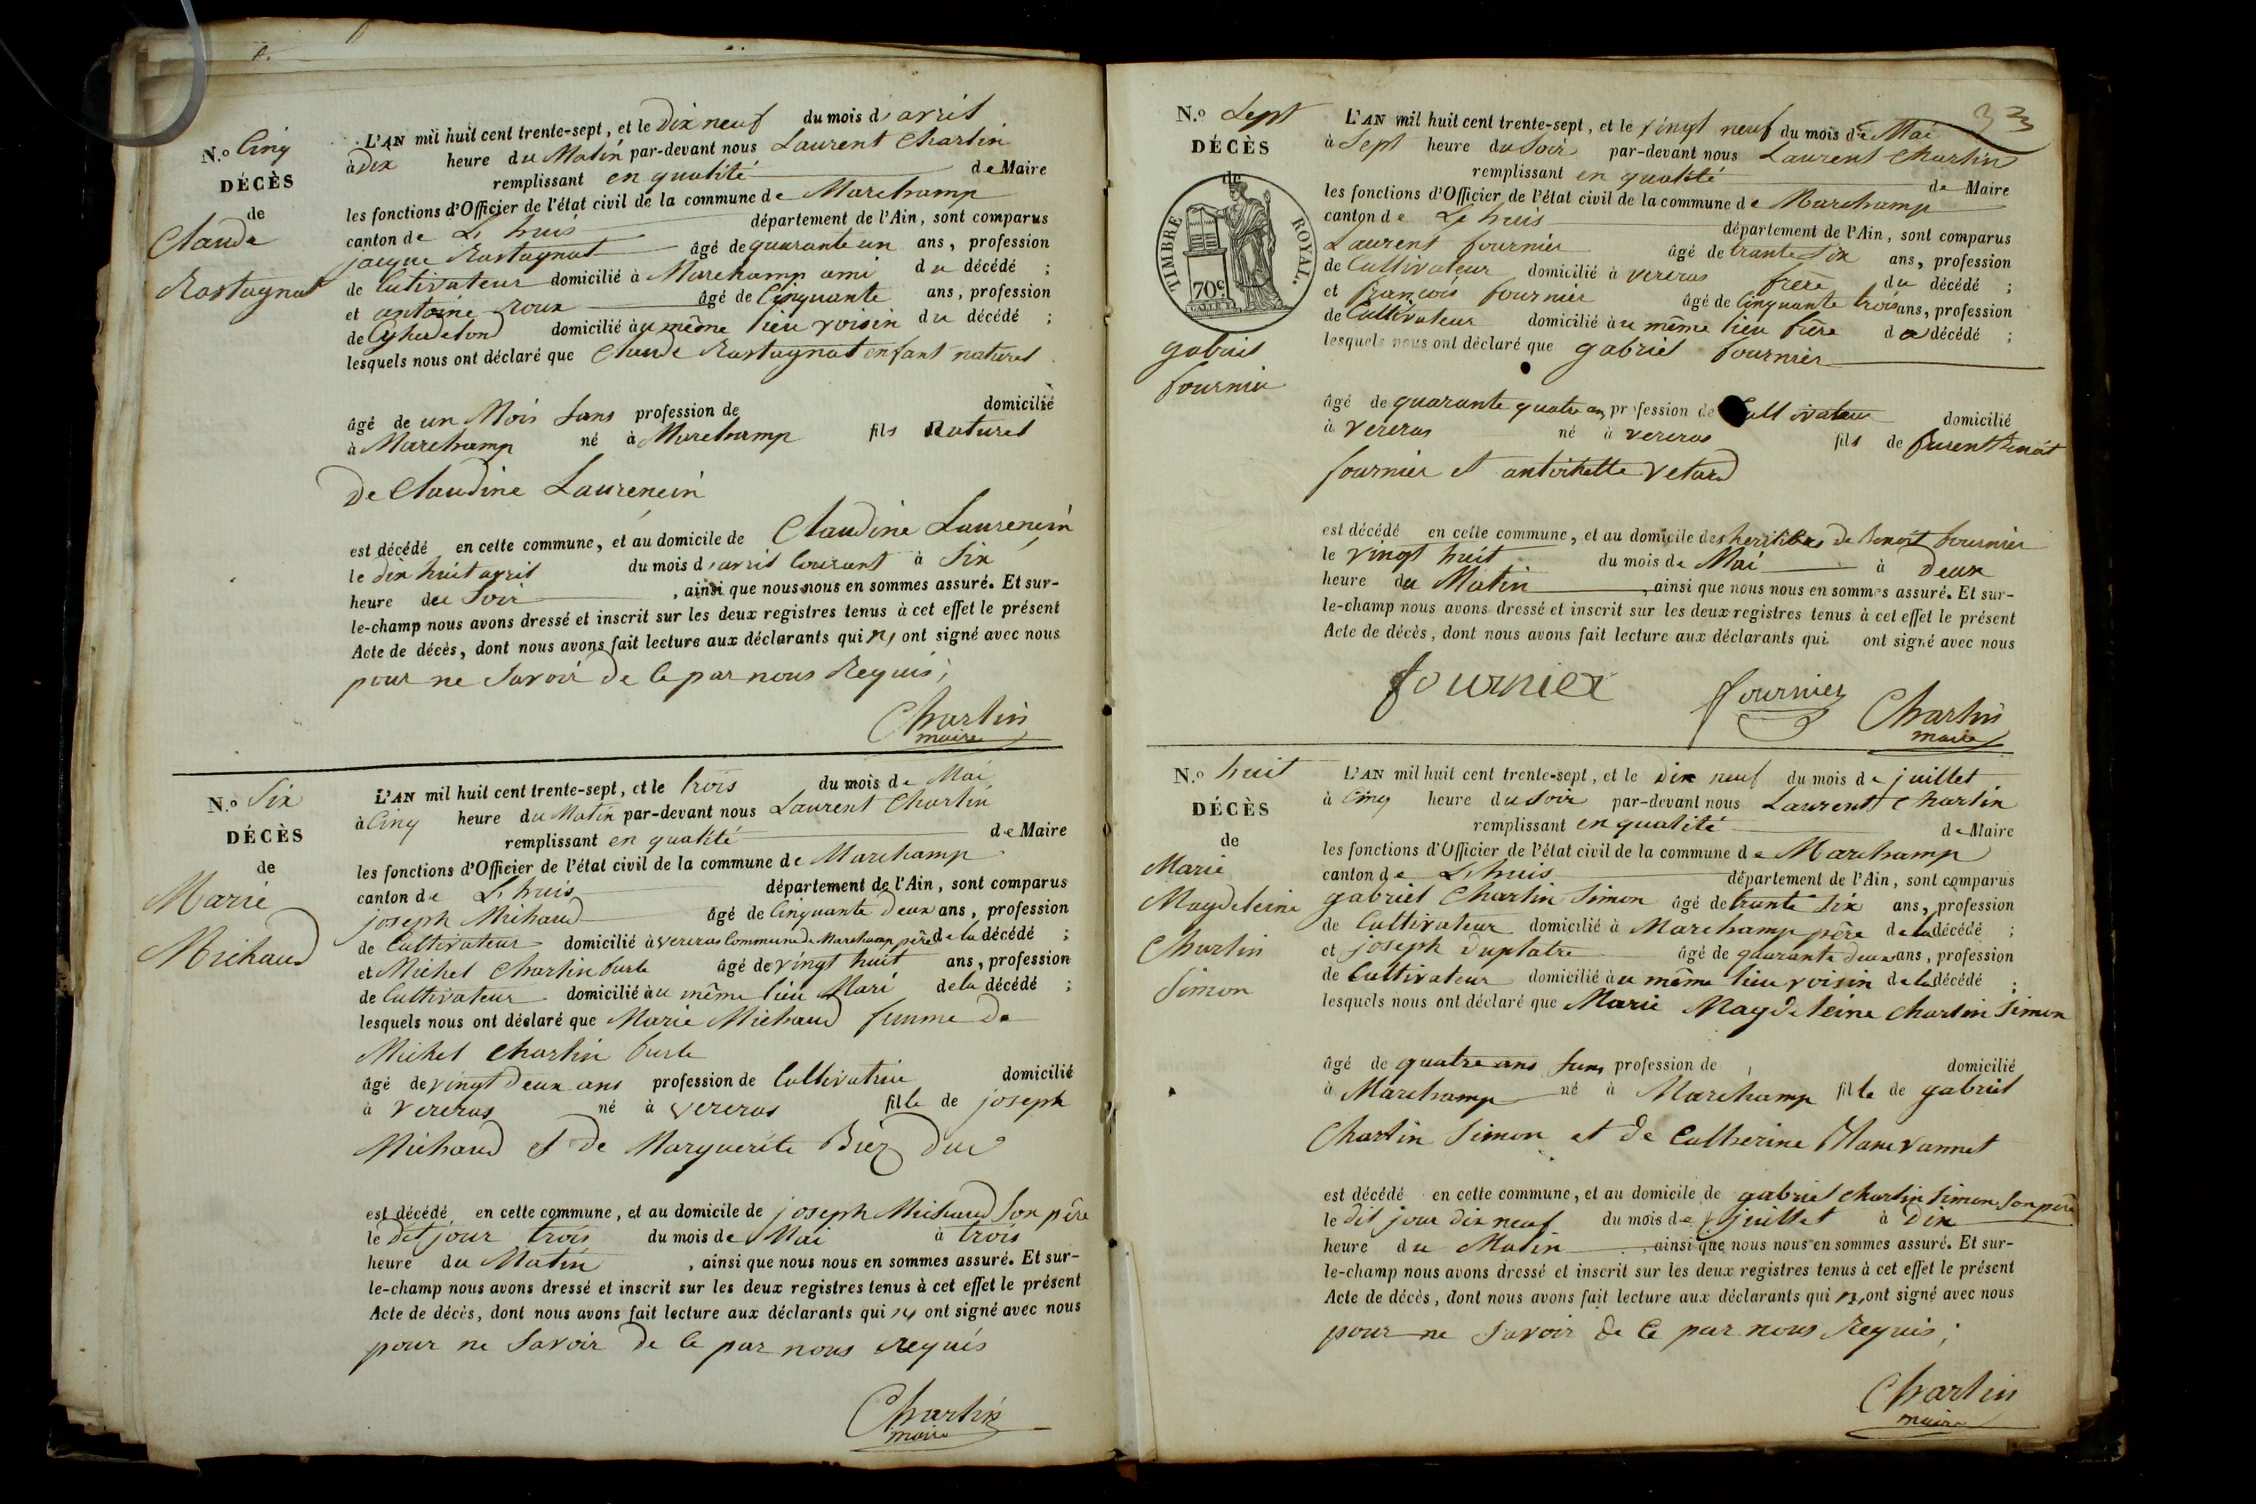 N.o Cinq
DÉCÈS
de
Claude
Rostagnat
L'AN mil huit cent trente-sept, et le Dix neuf du mois d'avril
à Dix heure du Matin par-devant nous Laurent Chartin
remplissant en qualité de Maire
les fonctions d'Officier de l'état civil de la commune de Marchamp
canton de L'huis département de l'Ain, sont comparus
jacque Rostagnat âgé de quarante un ans, profession
de Cutivateur domicilié à Marchamp ami du décédé ;
et antoine roux âgé de Cinquante ans, profession
de domicilié àu même lieu voisin du décédé ;
lesquels nous ont déclaré que Claude Rostagnat enfant naturel
âgé de un Mois Sans profession de domicilié
à Marchamp né à Marchamp fils Naturel
De Claudine Laurencin
est décédé en cette commune, et au domicile de Claudine Laurencin
le dix huit avril du mois d'avril Courant à Six
heure du Soir , ainsi que nous nous en sommes assuré. Et sur-
le-champ nous avons dressé et inscrit sur les deux registres tenus à cet effet le présent
Acte de décès, dont nous avons fait lecture aux déclarants qui n, ont signé avec nous
pour ne Savoir de Ce par nous Requis ;
Chartin
maire
N.o Six
DÉCÈS
de
Marie
Michaud
L'AN mil huit cent trente-sept, et le trois du mois de Mai
à Cinq heure du Matin par-devant nous Laurent Chartin
remplissant en qualité de Maire
les fonctions d'Officier de l'état civil de la commune de Marchamp
canton de L'huis département de l'Ain, sont comparus
joseph Michaud âgé de Cinquante Deux ans, profession
de Cultivateur domicilié à vereras Commune de Marchamp père de la décédé ;
et Michel Chartin furle âgé de vingt huit ans, profession
de Cultivateur domicilié àu même lieu Mari de la décédé ;
lesquels nous ont déclaré que Marie Michaud femme de
Michel Chartin furle
âgé de vingt Deux ans profession de Cultivatrice domicilié
à vereras né à vereras fille de joseph
Michaud et De Marguerite Biez Duc
est décédé en cette commune, et au domicile de joseph Michaud Son père
le Dit jour trois du mois de Mai à trois
heure du Matin , ainsi que nous nous en sommes assuré. Et sur-
le-champ nous avons dressé et inscrit sur les deux registres tenus à cet effet le présent
Acte de décès, dont nous avons fait lecture aux déclarants qui n, ont signé avec nous
pour ne Savoir de Ce par nous requis
Chartin
maire
33
N.o Sept
DÉCÈS
de
TIMBRE ROYAL.
70c
gabriel
fournier
L'AN mil huit cent trente-sept, et le vingt neuf du mois de Mai
à Sept heure du Soir par-devant nous Laurent Chartin
remplissant en qualité de Maire
les fonctions d'Officier de l'état civil de la commune de Marchamp
canton de L'huis département de l'Ain, sont comparus
Laurent fournier âgé de trante Six ans, profession
de Cultivateur domicilié à vereras frère du décédé ;
et françois fournier âgé de Cinquante trois ans, profession
de Cultivateur domicilié àu même lieu frère du décédé ;
lesquels nous ont déclaré que gabriel fournier
âgé de quarante quatre ans profession de Cultivateur domicilié
à vereras né à vereras fils de Benoit
fournier et antoinette vetard
est décédé en cette commune, et au domicile des heritiers de Benoit fournier
le vingt huit du mois de Mai à Deux
heure du Matin , ainsi que nous nous en sommes assuré. Et sur-
le-champ nous avons dressé et inscrit sur les deux registres tenus à cet effet le présent
Acte de décès, dont nous avons fait lecture aux déclarants qui ont signé avec nous
fournier fournier Chartin
maire
N.o huit
DÉCÈS
de
Marie
Magdeleine
Chartin
Simon
L'AN mil huit cent trente-sept, et le Dix neuf du mois de juillet
à Cinq heure du Soir par-devant nous Laurent Chartin
remplissant en qualité de Maire
les fonctions d'Officier de l'état civil de la commune de Marchamp
canton de L'huis département de l'Ain, sont comparus
gabriel Chartin Simon âgé de trante Six ans, profession
de Cultivateur domicilié à Marchamp père de la décédé ;
et joseph Duplatre âgé de quarante deux ans, profession
de Cultivateur domicilié àu même lieu voisin de la décédé ;
lesquels nous ont déclaré que Marie Magdeleine Chartin Simon
âgé de quatre ans Sans profession de domicilié
à Marchamp né à Marchamp fille de gabriel
Chartin Simon et de Catherine Blanc vannet
est décédé en cette commune, et au domicile de gabriel Chartin Simon Son père
le dit jour dix neuf du mois de juillet à Dix
heure du Matin , ainsi que nous nous en sommes assuré. Et sur-
le-champ nous avons dressé et inscrit sur les deux registres tenus à cet effet le présent
Acte de décès, dont nous avons fait lecture aux déclarants qui n, ont signé avec nous
pour ne Savoir de Ce par nous Requis ;
Chartin
maire